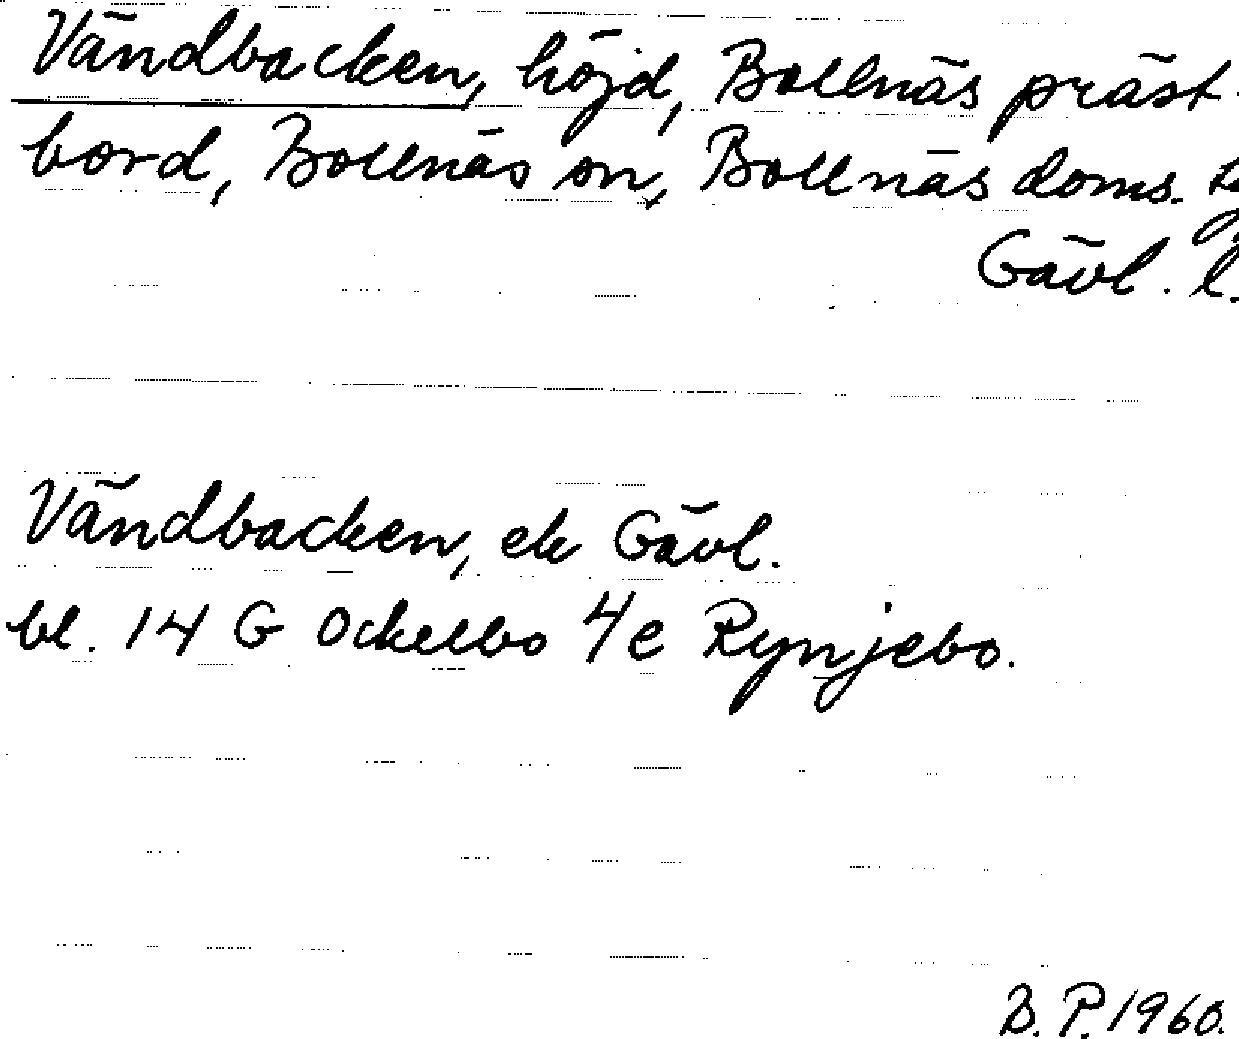 Vändbacken, höjd, Bollnäs präst-
bord, Bollnäs sn, Bollnäs doms.
Gävl. l.
Vändbacken, ek Gävl.
bl. 14 G Ockelbo 4e Rynjebo.
B. P. 1960.